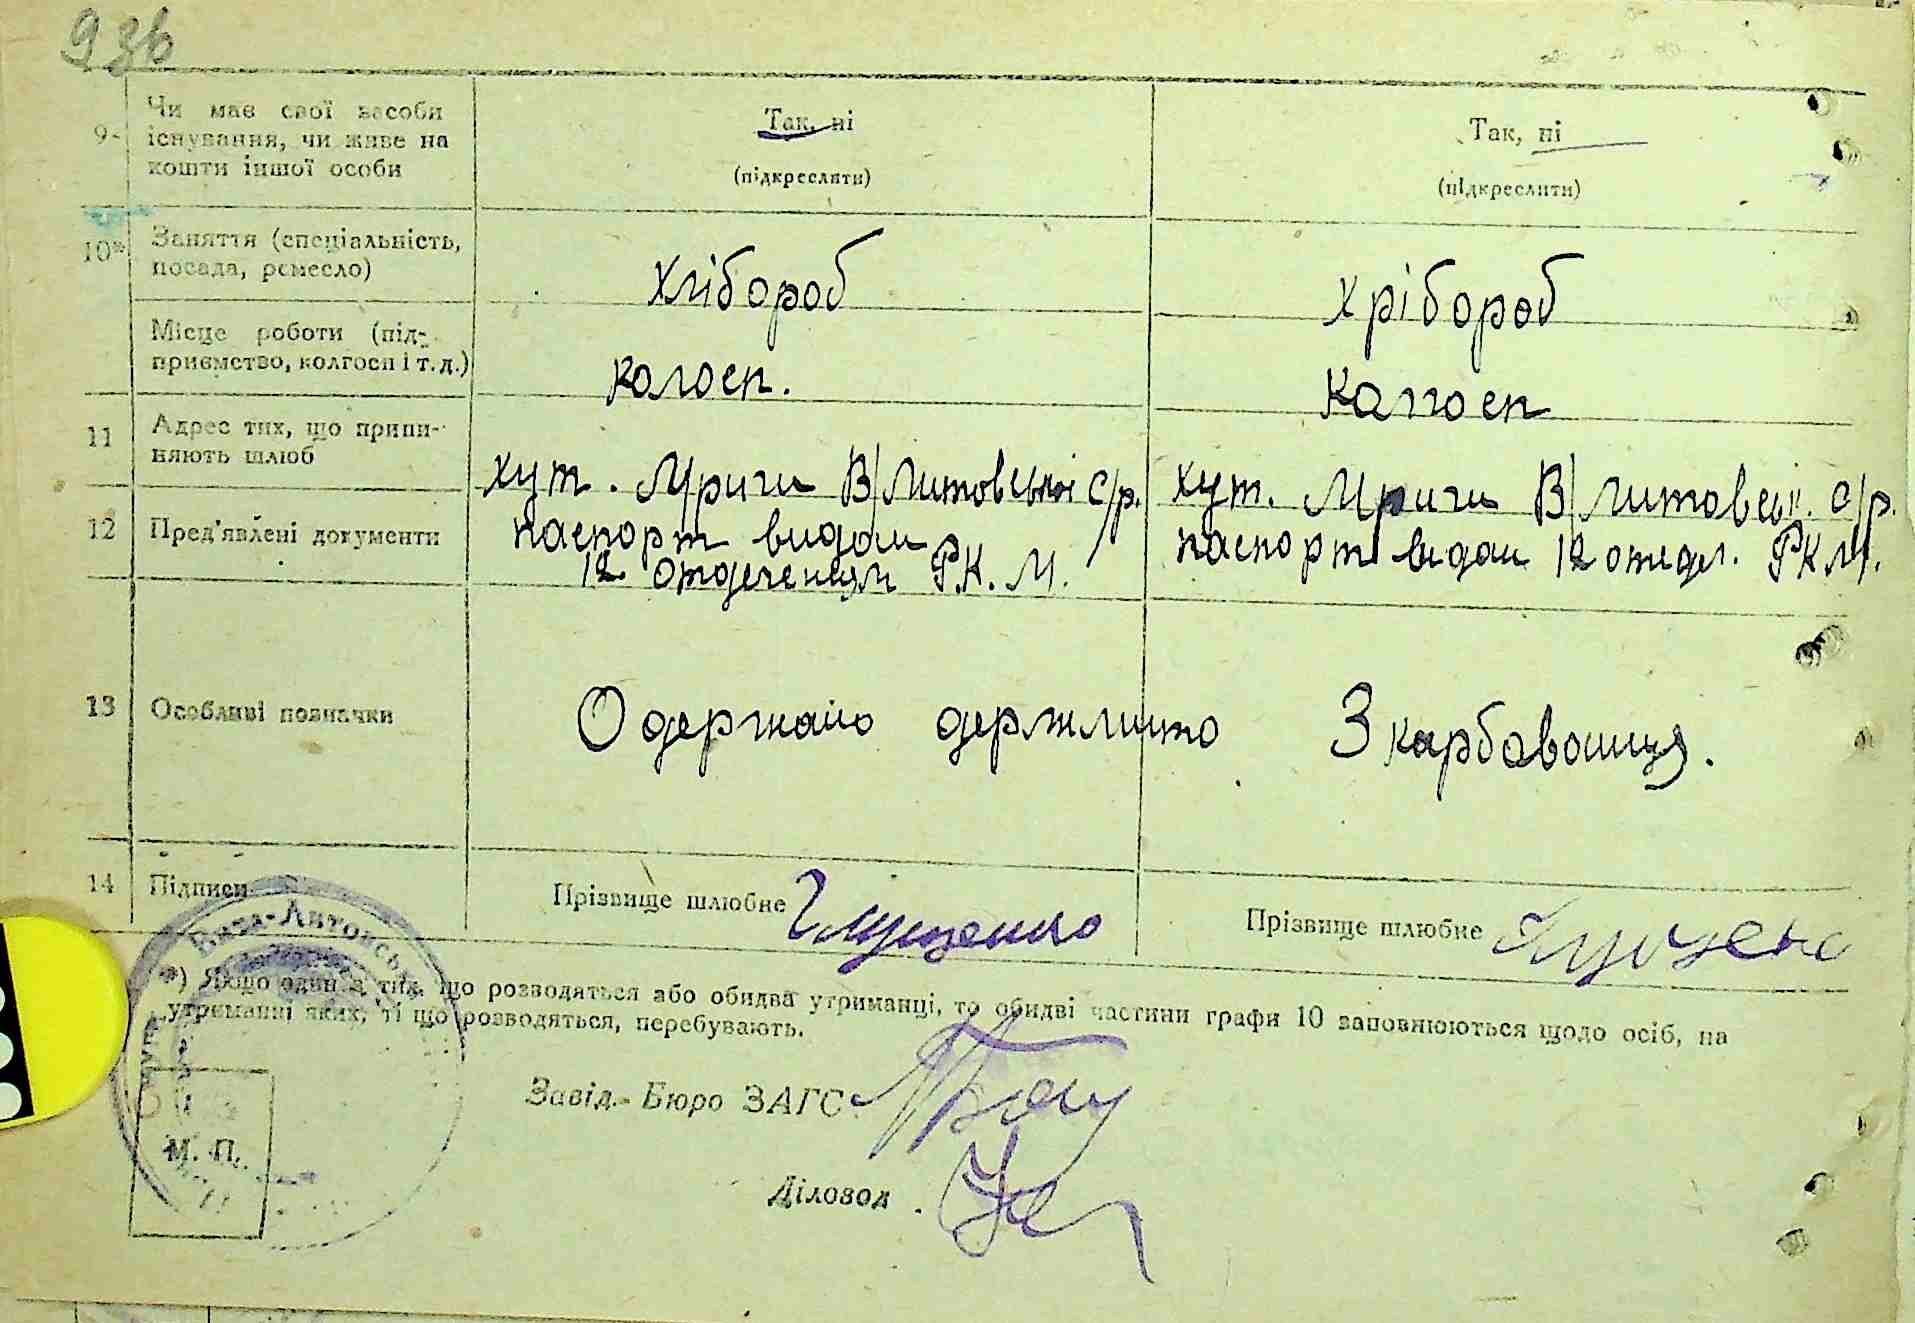 93в
9- Чи має свої засоби існування, чи живе на кошти іншої особи
Так, ні
(підкреслити)
Так, ні
(підкреслити)
10* Заняття (спеціальність, посада, ремесло)
хлібороб
хрібороб
Місце роботи (підприємство, колгосп і т. д.)
колосп.
11 Адрес тих, що припиняють шлюб
хут. Мриги В/Литовської с/р.
хут. Мриги В/Литовськ. с/р.
12 Пред'явлені документи
паспорт видан
12 отделением Р.К.М.
паспорт видан 12 отдел. РКМ.
13 Особливі позначки
Одержано держмито 3 карбованця.
14 Підписи
Прізвище шлюбне Глущенко
Прізвище шлюбне
*) Якщо один з тих, що розводяться або обидва утриманці, то обидві частини графи 10 заповнюються щодо осіб, на
утриманні яких, ті що розводяться, перебувають.
Завід. Бюро ЗАГС
М. П.
Діловод